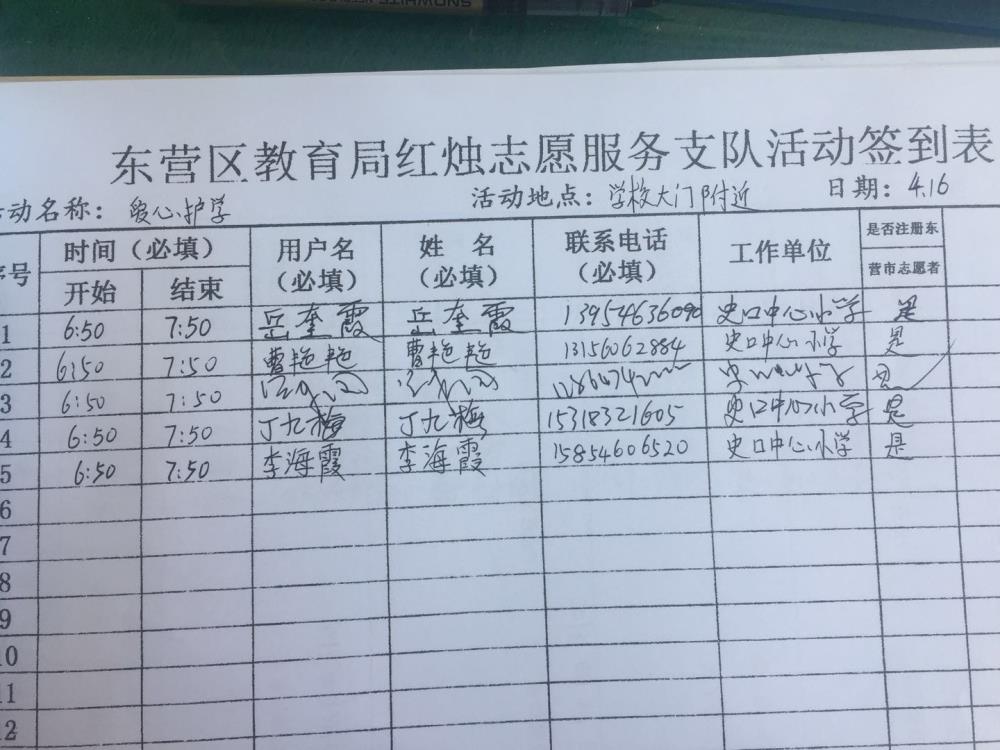 SNOWHITE
东营区教育局红烛志愿服务支队活动签到表
动名称：爱心护学 活动地点：学校大门附近 日期：4.16
号 时间（必填） 用户名（必填） 姓 名（必填） 联系电话（必填） 工作单位 是否注册东营市志愿者
开始 结束
1 6:50 7:50 岳奎霞 岳奎霞 13954636090 史口中心小学 是
2 6:50 7:50 曹艳艳 曹艳艳 13156062884 史口中心小学 是
3 6:50 7:50 是
4 6:50 7:50 丁九梅 丁九梅 15318321605 史口中心小学 是
5 6:50 7:50 李海霞 李海霞 15854606520 史口中心小学 是
6
7
8
9
10
11
12